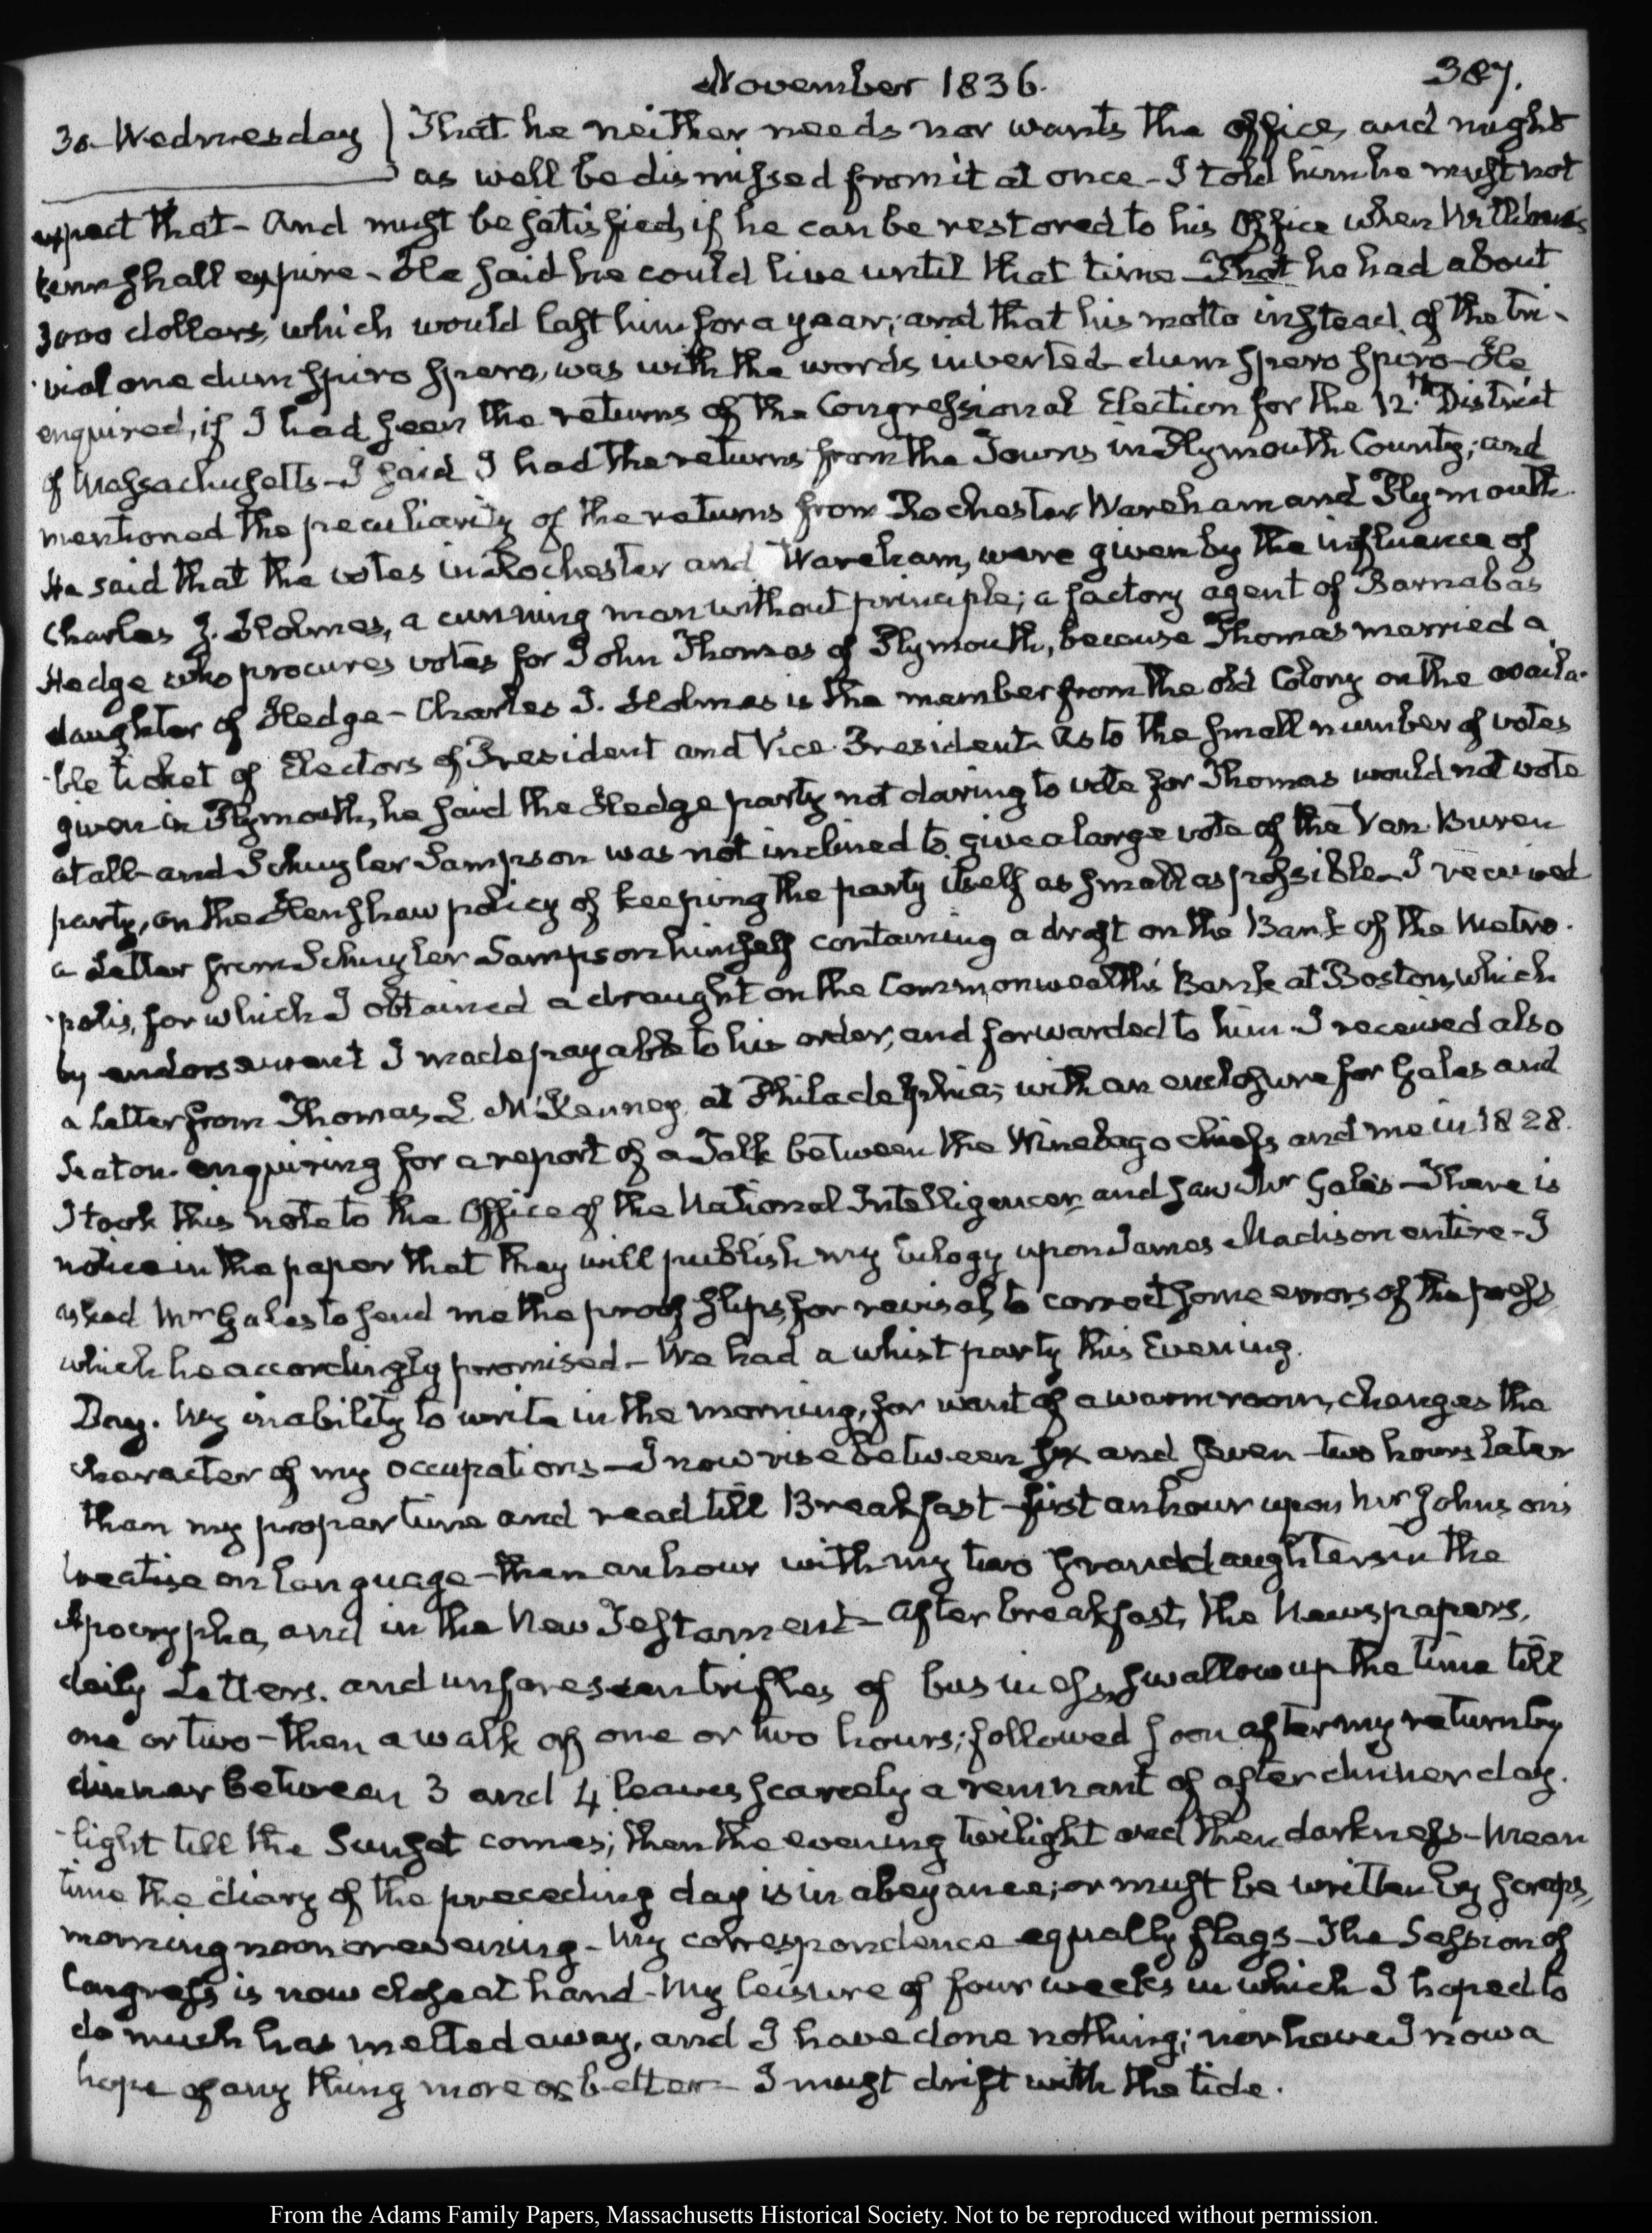 November 1836.
387.
30. Wednesday } That he neither needs nor wants the office, and might
as well be dismissed from it at once – I told him he must not
expect that – And must be satisfied, if he can be restored to his Office when
term shall expire – He said he could live until that time – That he had about
3000 dollars, which would last him for a year; and that his motto instead of the tri-
-vial one dum spiro spero, was with the words inverted dum spero spiro – He
enquired, if I had seen the returns of the Congressional Election for the 12.th District
of Massachusetts – I said I had the returns from the Towns in Plymouth County; and
mentioned the peculiarity of the returns from Rochester Wareham and Plymouth.
He said that the votes in Rochester and Wareham, were given by the influence of
Charles J. Holmes, a cunning man without principle; a factory agent of Barnabas
Hedge who procures votes for John Thomas of Plymouth, because Thomas married a
daughter of Hedge – Charles J. Holmes is the member from the old Colony on the availa-
-ble ticket of Electors of President and Vice-President. As to the small number of votes
given in Plymouth, he said the Hedge party not daring to vote for Thomas would not vote
at all – and Schuyler Sampson was not inclined to give a large vote of the Van Buren
party, on the Henshaw policy of keeping the party itself as small as possible – I received
a Letter from Schuyler Sampson himself containing a draft on the Bank of the Metro-
-polis, for which I obtained a draught on the Commonwealth's Bank at Boston, which
by endorsement I made payable to his order, and forwarded to him. I received also
a Letter from Thomas L. McKenney at Philadelphia; with an enclosure for Gales and
Seaton enquiring for a report of a Talk between the Winebago chiefs and me in 1828.
I took this note to the Office of the National Intelligencer, and saw Mr Gales – There is
notice in the paper that they will publish my Eulogy upon James Madison entire – I
asked Mr Gales to send me the proof slips, for revisal, to correct some errors of the press
which he accordingly promised – We had a whist party this Evening.
Day. My inability to write in the morning, for want of a warm room, changes the
character of my occupations – I now rise between six and seven – two hours later
than my proper time and read till Breakfast – first an hour upon Mr Johnson's
treatise on language – then an hour with my two Granddaughters in the
Apocrypha, and in the New Testament – After breakfast, the Newspapers,
daily Letters. and unforeseen trifles of business, swallow up the time till
one or two – then a walk of one or two hours; followed soon after my return by
dinner between 3 and 4 leaves scarcely a remnant of after dinner day-
-light till the Sunset comes; then the evening twilight and then darkness – Mean
time the diary of the preceding day is in abeyance; or must be written by scraps,
morning noon or evening – My correspondence equally flags – The Session of
Congress is now close at hand – My leisure of four weeks in which I hoped to
do much has melted away, and I have done nothing; nor have I now a
hope of any thing more or better – I must drift with the tide.
From the Adams Family Papers, Massachusetts Historical Society. Not to be reproduced without permission.